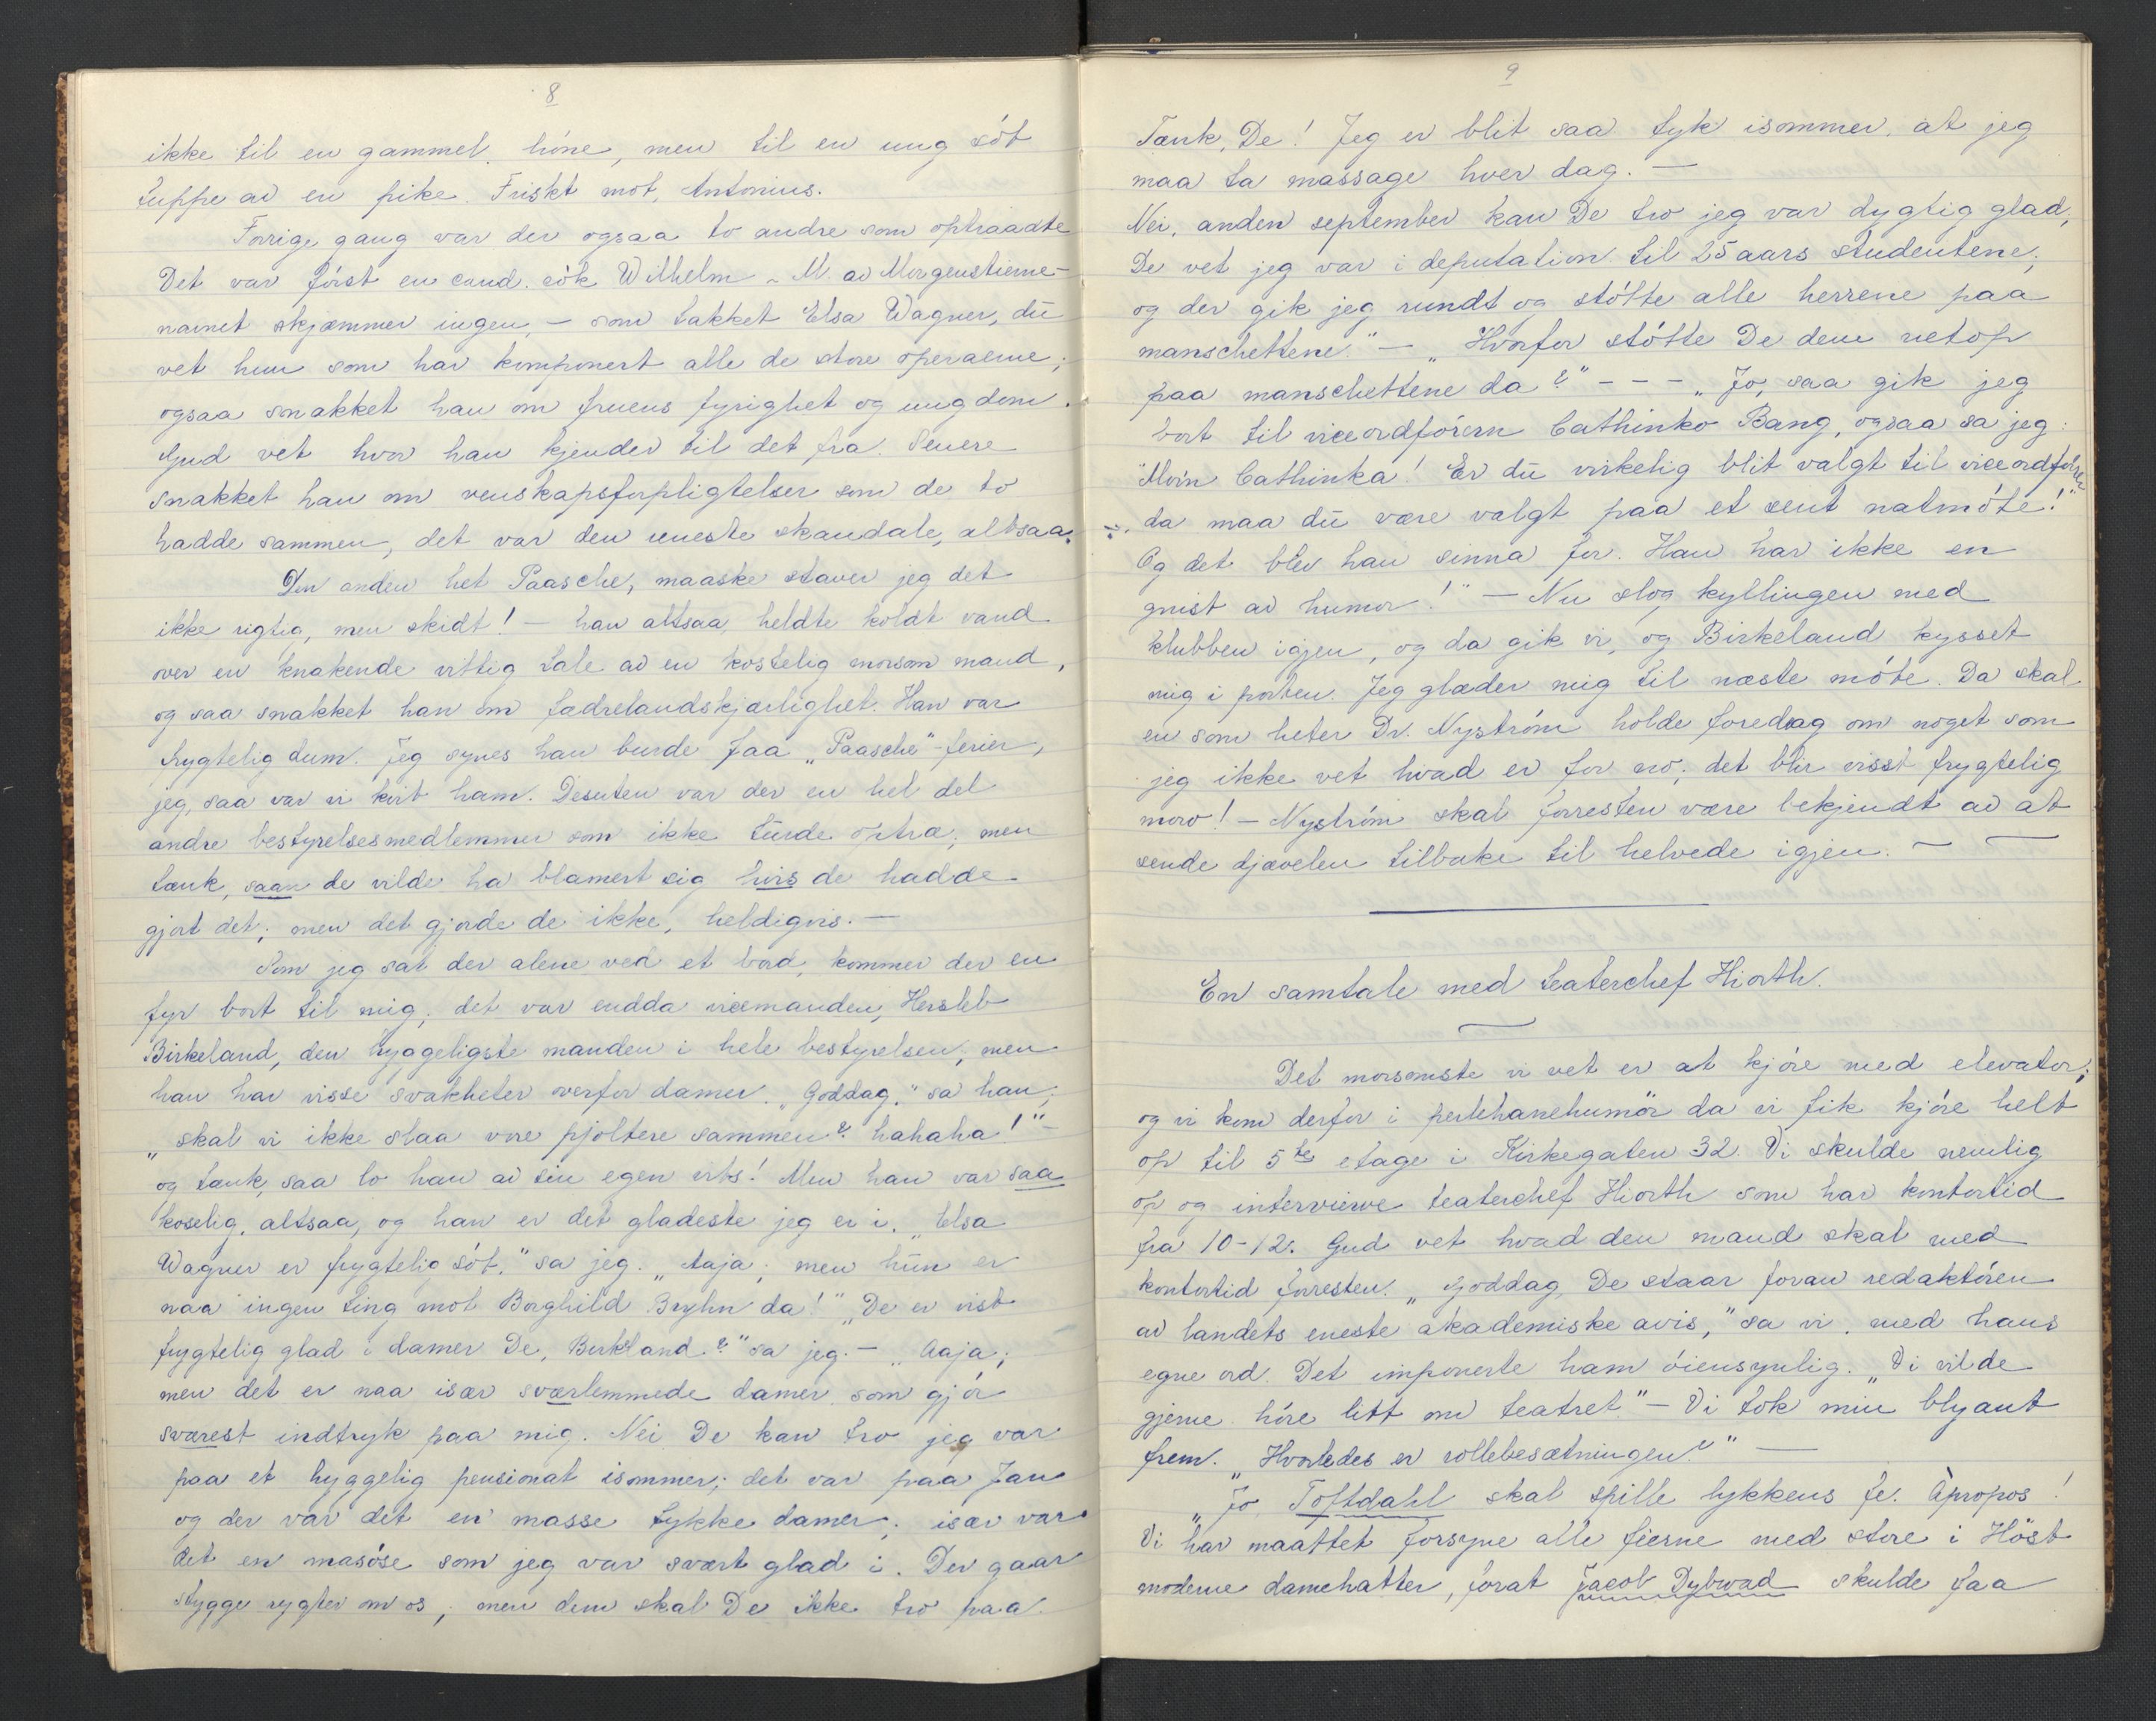 8
ikke til en gammel höne, men til en ung söt
tuppe av en pike. Friskt mot, Antonius.
Forrige gang var der ogsaa to andre som optraadte
Det var först en cand. oök Wilhelm ~ M. av Morgenstierne -
navnet skjæmmer ingen, - som takket Elsa Wagner, du
vet hun som har komponert alle de store operaerne;
ogsaa snakket han om fruens fyrighet og ungdom.
Gud vet hvor han kjender til det fra. Senere
snakket han om venskapsforpligtelser som de to
hadde sammen, det var den reneste skandale, altsaa.
Den anden het Paasche, maaske staver jeg det
ikke rigtig, men skidt! - han altsaa heldte koldt vand
over en knakende vittig tale av en kostelig morsom mand,
og saa snakket han om fædrelandskjærlighet. Han var
frygtelig dum. Jeg synes han burde faa „Paasche"-ferier,
jeg, saa var vi kvit ham. Desuten var der en hel del
andre bestyrelsesmedlemmer som ikke turde optræ, men
tænk, saan de vilde ha blamert sig hvis de hadde
gjort det; men det gjorde de ikke, heldigvis. -
Som jeg sat der alene ved et bord, kommer der en
fyr bort til mig; det var endda vicemanden, Hersleb
Birkeland, den hyggeligste manden i hele bestyrelsen, men
han har visse svakheter overfor damer. „Goddag," sa han,
„skal vi ikke slaa vore pjoltere sammen? hahaha!" -
og tænk, saa lo han av sin egen vits! Men han var saa
koselig, altsaa, og han er det gladeste jeg er i. „Elsa
Wagner er frygtelig söt," sa jeg. „Aaja; men hun er
naa ingen ting mot Borghild Bryhn da!" „De er vist
frygtelig glad i damer De, Birkland?" sa jeg. - „Aaja;
men det er naa især sværlemmede damer som gjör
sværest indtryk paa mig. Nei De kan tro jeg var
paa et hyggelig pensionat isommer; det var paa Jan
og der var det en masse tykke damer; især var
det en masöse som jeg var svært glad i. Der gaar
stygge rygter om os; men dem skal De ikke tro paa.
9
Tænk, De! Jeg er blit saa tyk isommer, at jeg
maa ta massage hver dag. -
Nei, anden september kan De tro jeg var dygtig glad,
De vet jeg var i deputation til 25 aars studentene;
og der gik jeg rundt og stötte alle herrene paa
manschettene." - „Hvorfor stötte De dem netop
paa manschettene da?" - - - „Jo, saa gik jeg
bort til viceordförern Cathinko Bang, ogsaa sa jeg:
"Morn Cathinka! Er du virkelig blit valgt til viceordförer
da maa du være valgt paa et sent natmöte!"
Og det blev han sinna for. Han har ikke en
gnist av humor!" - Nu slog kyllingen med
klubben igjen, og da gik vi, og Birkeland kysset
mig i porten. Jeg glæder mig til næste möte. Da skal
en som heter Dr. Nyström holde foredrag om noget som
jeg ikke vet hvad er for no; det blir visst frygtelig
moro! - Nyström skal forresten være bekjendt av at
sende djævelen tilbake til helvede igjen. -
En samtale med teaterchef Hiorth.
Det morsomste vi vet er at kjöre med elevator;
og vi kom derfor i perlehanehumör da vi fik kjöre helt
op til 5te etage i Kirkegaten 32. Vi skulde nemlig
op og interviewe teaterchef Hiorth som har kontortid
fra 10-12. Gud vet hvad den mand skal med
kontortid forresten. „Goddag, De staar foran redaktören
av landets eneste akademiske avis," sa vi, med hans
egne ord. Det imponerte ham öiensynlig. „Vi vilde
gjerne höre litt om teatret." - Vi tok min blyant
frem. „Hvorledes er rollebesætningen?" -
„Jo Toftdahl skal spille lykkens fe. Àpropos!
Vi har maattet forsyne alle féerne med store i Höst
moderne damehatter, forat Jacob Dybwad skulde faa